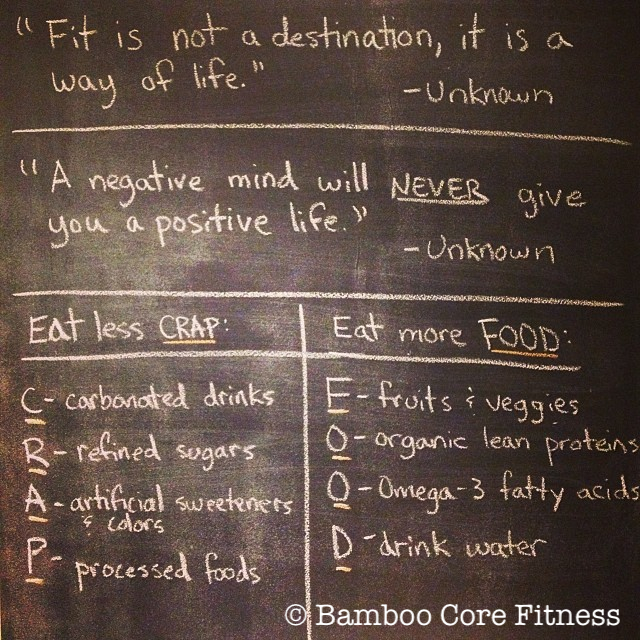 “Fit is not a destination, it is a
way of life.”
-Unknown
“A negative mind will NEVER give
you a positive life.”
-Unknown
Eat less CRAP:
C- carbonated drinks
R- refined sugars
A- artificial sweeteners
& colors
P- processed foods
Eat more FOOD:
F- fruits & veggies
O- organic lean proteins
O- Omega-3 fatty acids
D- drink water
© Bamboo Core Fitness